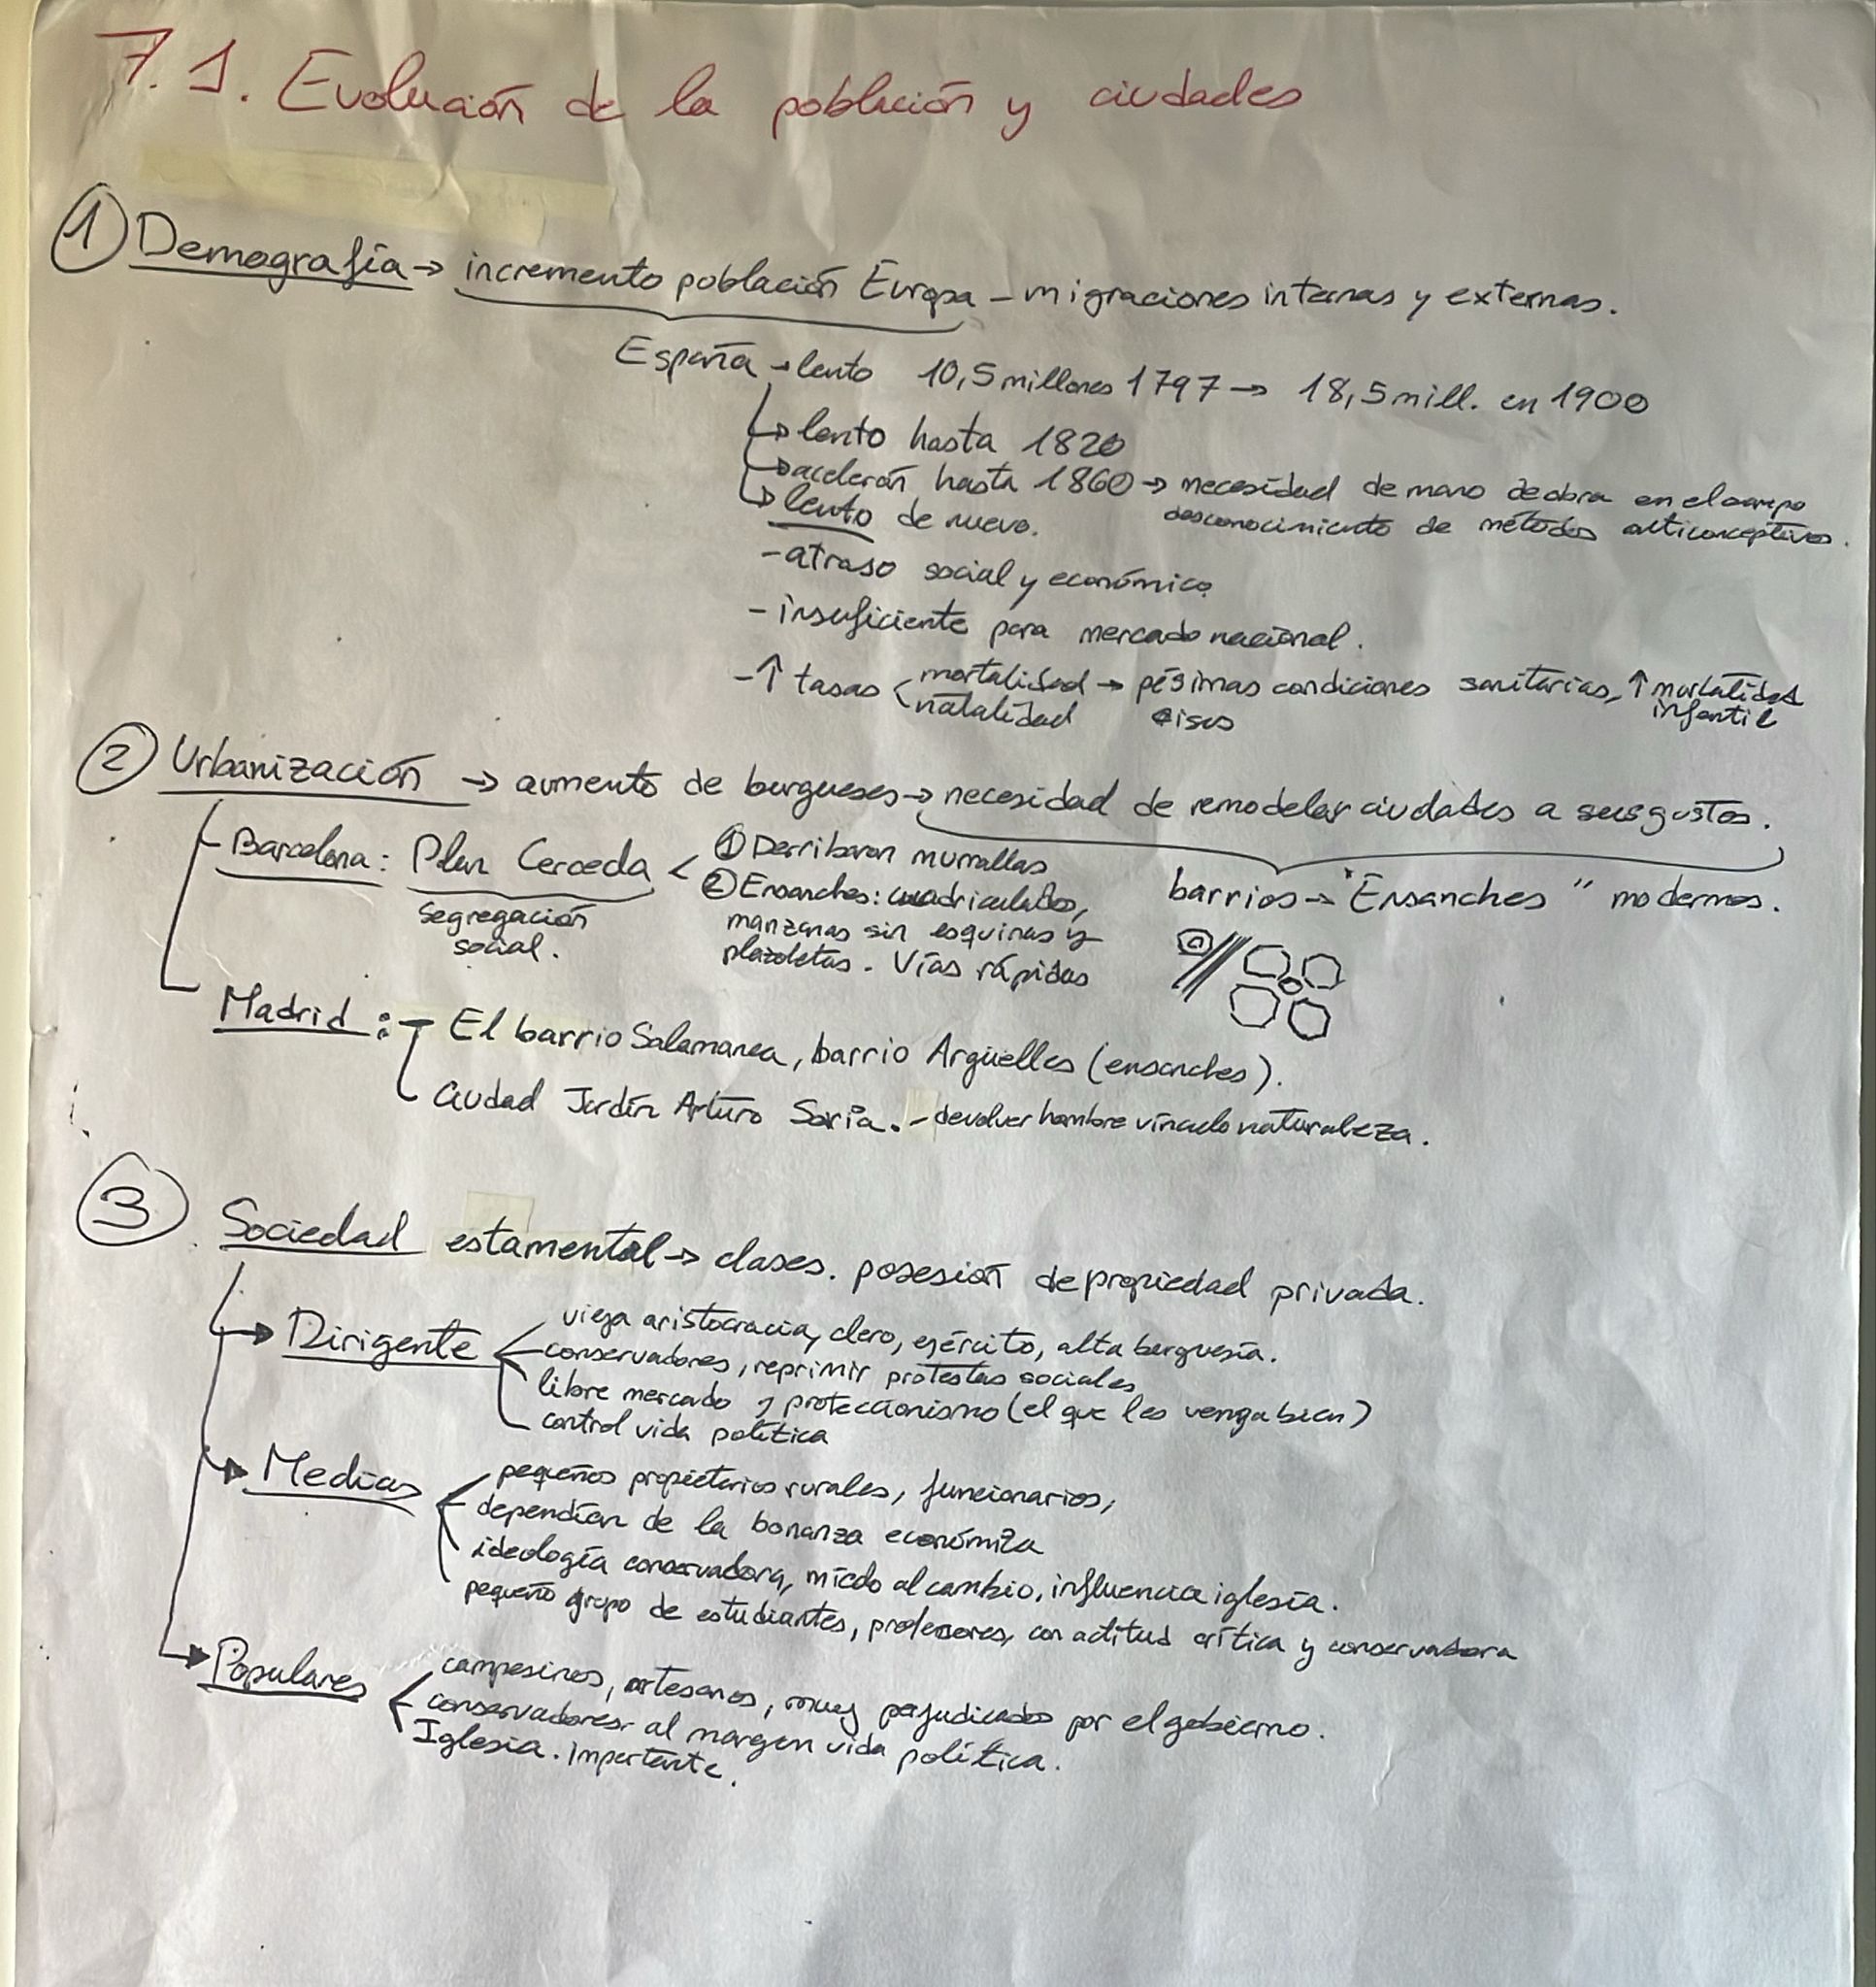 7.1. Evolución de la población y ciudades
① Demografía → incremento población Europa – migraciones internas y externas.
España → lento 10,5 millones 1797 → 18,5 mill. en 1900
↳ lento hasta 1820
↳ aceleran hasta 1860 → necesidad de mano de obra en el campo
desconocimiento de métodos anticonceptivos.
↳ lento de nuevo.
- atraso social y económico
- insuficiente para mercado nacional.
- ↑ tasas < mortalidad → pésimas condiciones sanitarias, ↑ mortalidad infantil
natalidad
② Urbanización → aumento de burgueses → necesidad de remodelar ciudades a sus gustos.
barrios → "Ensanches" modernos.
Barcelona: Plan Cerceda < ① Derribaron murrallas
② Ensanches: cuadriculados,
manzanas sin esquinas y
plazoletas. Vías rápidas
Segregación
social.
Madrid: - El barrio Salamanca, barrio Argüelles (ensanches).
Ciudad Jardín Arturo Soria. - devolver hombre vínculo naturaleza.
③ Sociedad estamental → clases. posesión de propiedad privada.
→ Dirigente < vieja aristocracia, clero, ejército, alta burguesía.
conservadores, reprimir protestas sociales
libre mercado y proteccionismo (el que les venga bien)
control vida política
→ Medias < pequeños propietarios rurales, funcionarios,
dependían de la bonanza económica
ideología conservadora, miedo al cambio, influencia iglesia.
pequeño grupo de estudiantes, profesores, con actitud crítica y conservadora
→ Populares < campesinos, artesanos, muy perjudicados por el gobierno.
conservadores al margen vida política.
Iglesia. Importante.